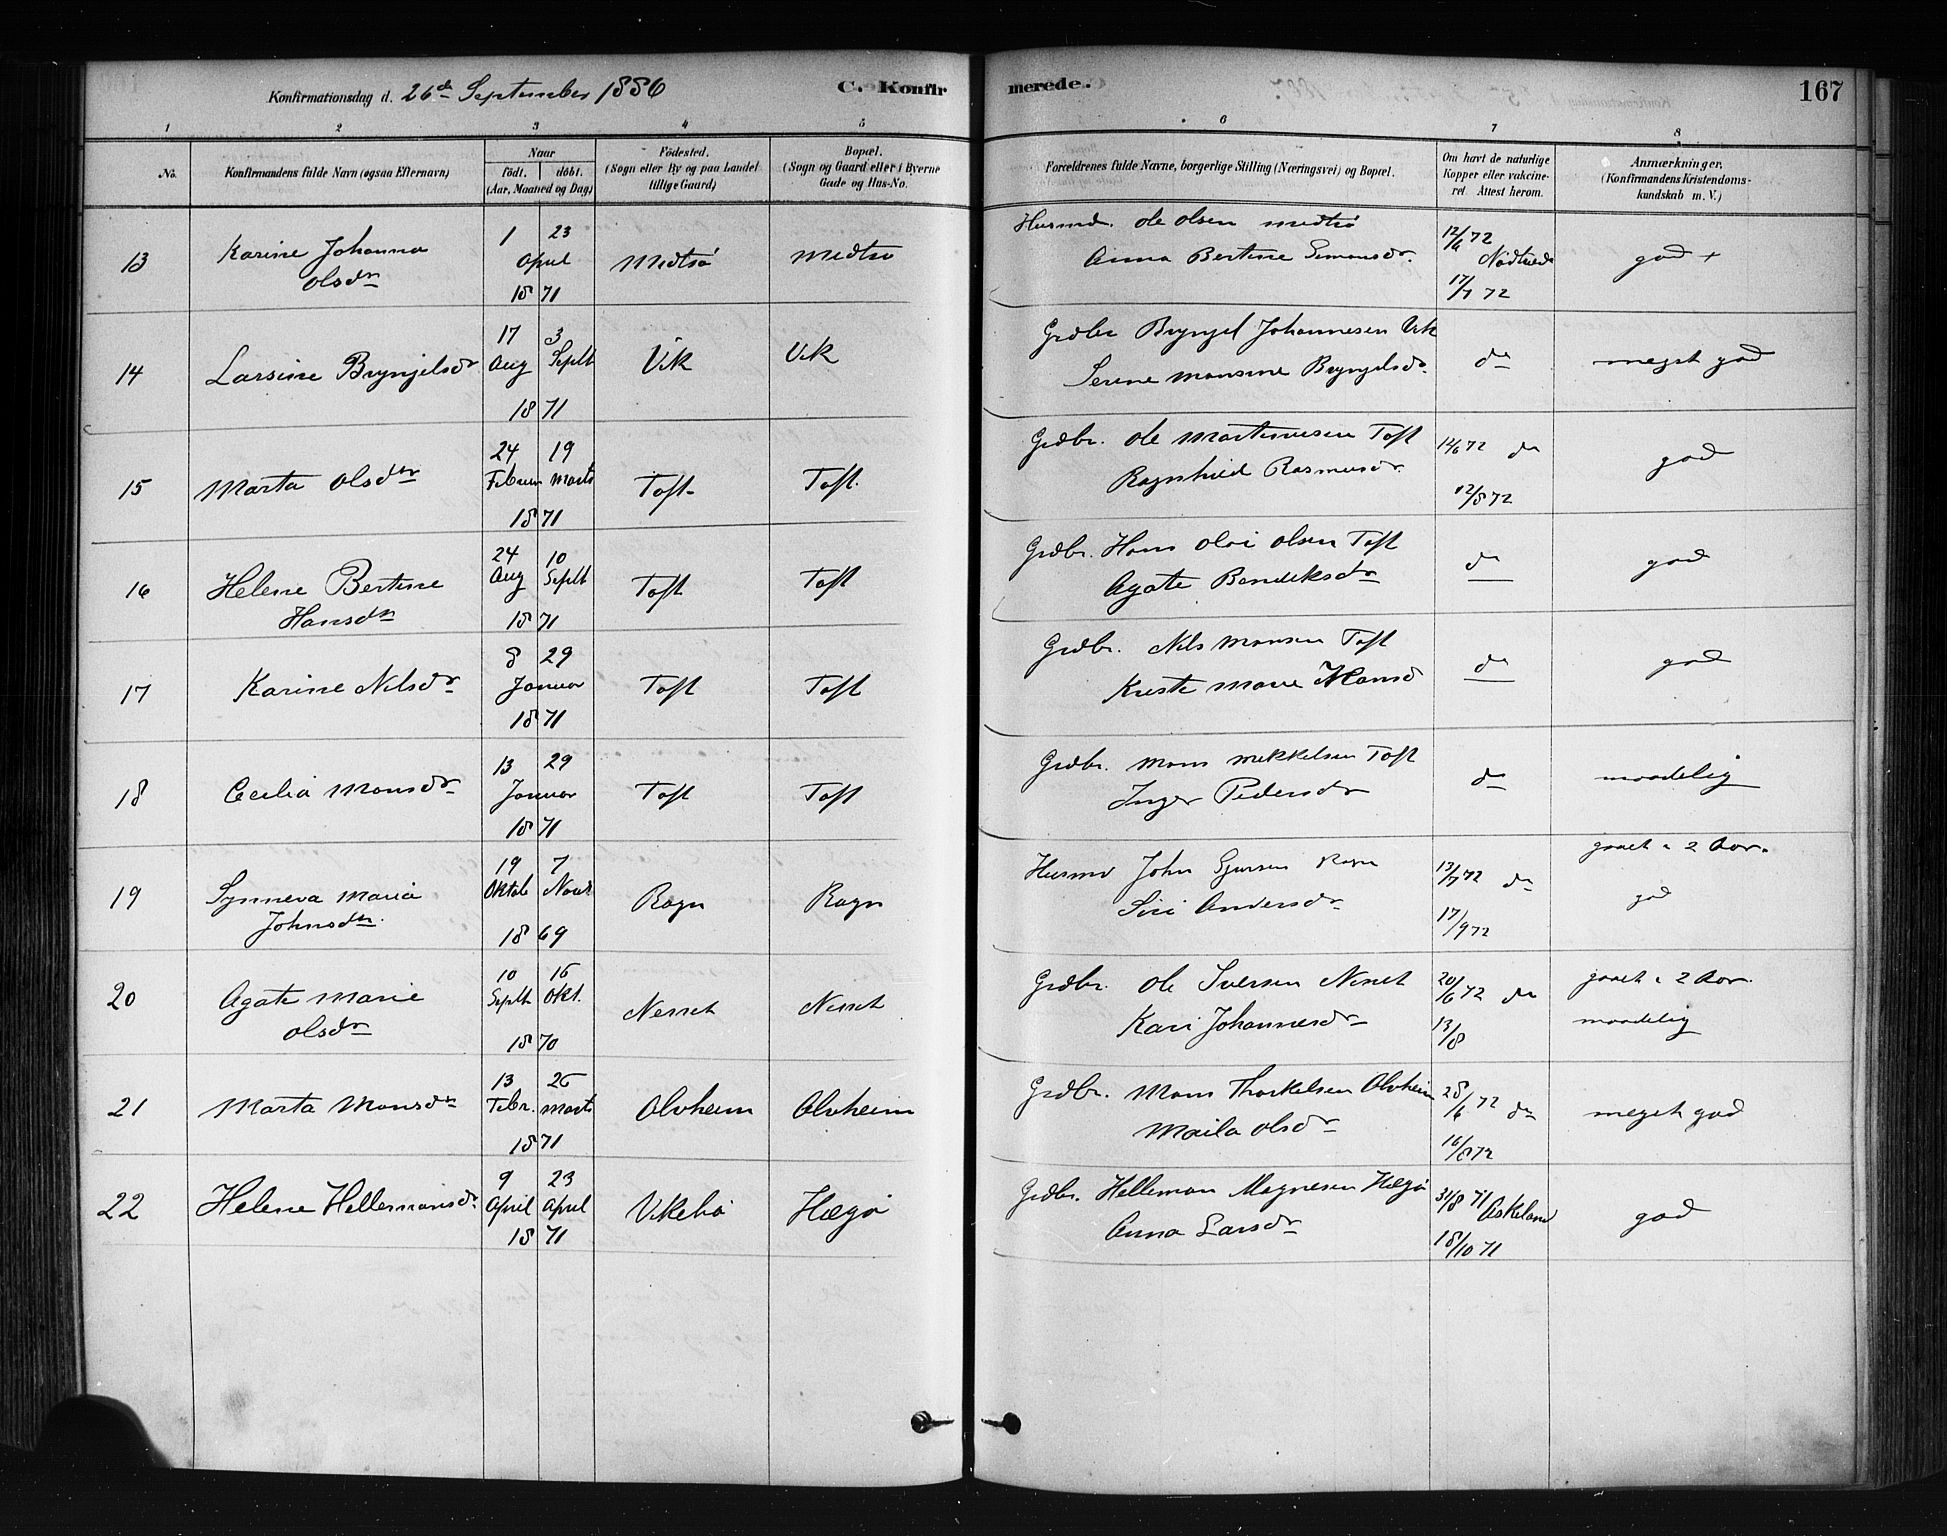 Konfirmationsdag d. 26de September 1886 C. Konfirmerede. 167
1 2 3 4 5 6 7 8
No. Konfirmandens fulde Navn (ogsaa Efternavn) Naar født. døbt. (Aar, Maaned og Dag) Fødested. (Sogn eller By og paa Landet tillige Gaard) Bopæl. (Sogn og Gaard eller i Byerne Gade og Hus-No. Forældrenes fulde Navne, borgerlige Stilling (Næringsvei) og Bopæl. Om havt de naturlige Kopper eller vakcineret. Attest herom. Anmærkninger. (Konfirmandens Kristendomskundskab m. V.)
13 Karine Johanna Olsdr 1 23 April 1871 Midtsø Midtsø Husmd. Ole Olsen Midtsø
Anna Bertine Simonsdr. 12/6 72 17/7 72 god +
14 Larsine Bryngelsdr 17 Aug 3 Septb 1871 Vik Vik Grdbr Bryngel Johannesen Vik
Serene Monsine Bryngelsdr. do meget god
15 Marta Olsdtr 24 Februar 19 Marts 1871 Toft Toft. Grdbr. Ole Martinusen Toft
Ragnhild Rasmusdr. 14/6 72 do 12/8 72 god
16 Helene Bertine Hansdtr 24 Aug 10 Septb 1871 Toft Toft Grdbr. Hans Olai Olsen Toft
Agate Bendiksdr do god
17 Karine Nilsdr 8 29 Januar 1871 Toft Toft Grdbr. Nils Monsen Toft
Kristi Marie Hansd do god
18 Cecilia Monsdr 13 29 Januar 1871 Toft Toft Grdbr. Mons Mikkelsen Toft
Inger Pedersdr do maadelig
19 Synneva Maria Johnsdtr. 19 Oktob 7 Novb 1869 Rogn Rogn Husmd John Sjursen Rogn
Siri Andersdr 13/7 72 do 17/9 72 gaaet i 2 Aar. god
20 Agate Marie Olsdr 10 Septb 16 Okt. 1870 Nesset Nesset Grdbr. Ole Iversen Nesset
Kari Johannesdr 20/6 72 do 13/8 gaaet i 2 Aar. maadelig
21 Marta Monsdr 13 Febr. 26 Marts 1871 Alvheim Alvheim Grdbr. Mons Thorkelsen Alvheim
Olsdr 28/6 72 do 16/8 72 meget god
22 Helene Hellemansdr 9 April 23 April 1871 Vikebø Hægø Grdbr. Helleman Magnesen Hægø
Anna Larsdr 31/8 71 Askeland 18/10 71 god